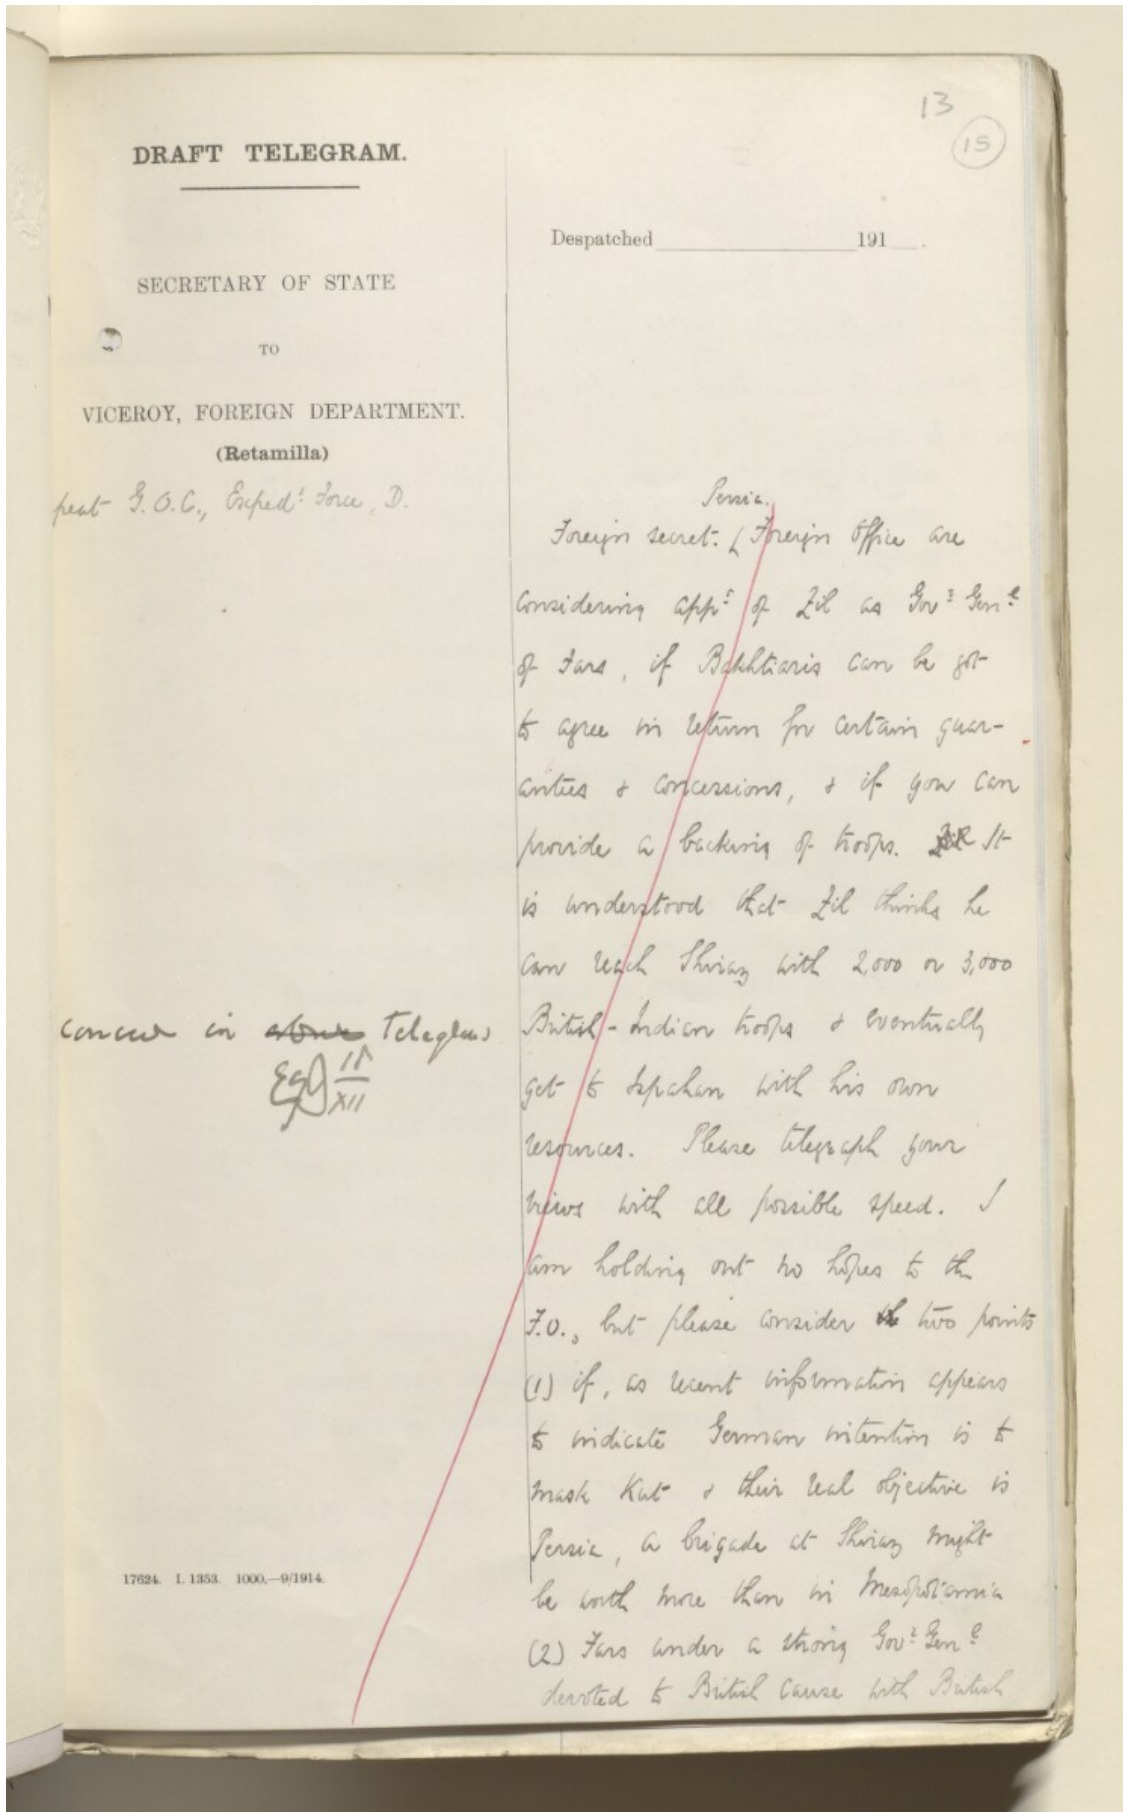 13
15
DRAFT TELEGRAM.
Despatched 191 .
SECRETARY OF STATE
TO
VICEROY, FOREIGN DEPARTMENT.
(Retamilla)
peat G.O.C., Exped.! Force, D.
Persia.
Foreign secret. [Foreign Office are
considering app.t of Zil as Gov.r Gen.l
of Fars, if Bakhtiaris can be got
to agree in return for certain guar-
anties & concessions, & if you can
provide a backing of troops. It
is understood that Zil thinks he
can reach Shiraz with 2,000 or 3,000
British-Indian troops & eventually
get to Ispahan with his own
resources. Please telegraph your
views with all possible speed. I
am holding out no hopes to the
F.O., but please consider two points
(1) if, as recent information appears
to indicate German intention is to
mask Kut & their real objective is
Persia, a brigade at Shiraz might
be worth more than in Mesopotamia
(2) Fars under a strong Gov.r Gen.l
devoted to British cause with British
concur in above Telegram
11/XII
17624. I. 1353. 1000.—9/1914.